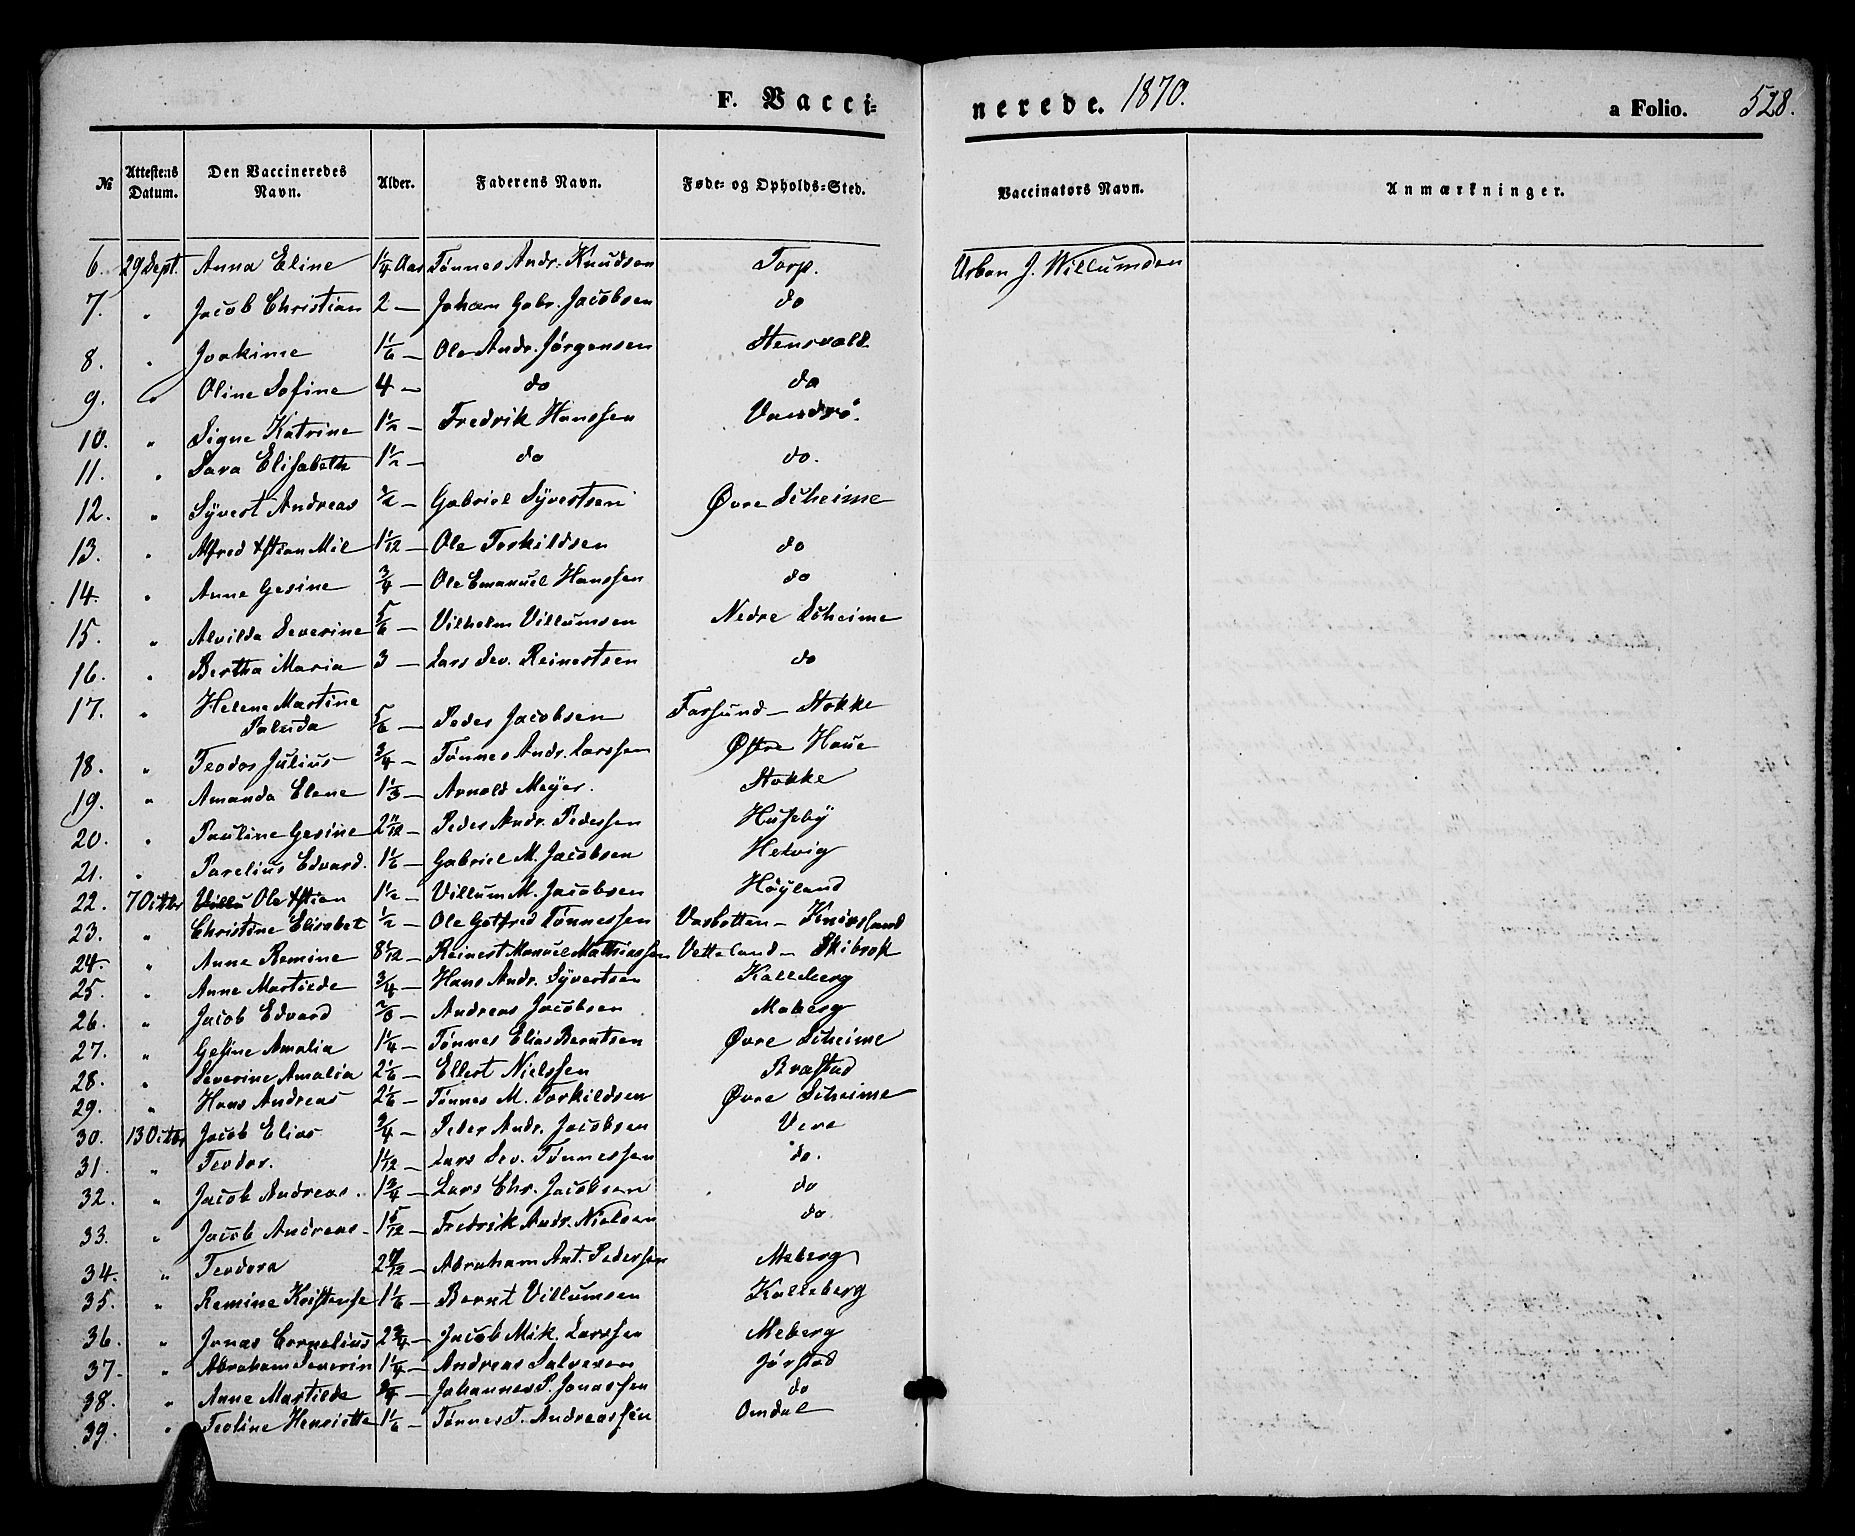 F. Vacci-
nerede. 1870.
a Folio. 528.
№ Attestens Datum. Den Vaccineredes Navn. Alder. Faderens Navn. Føde- og Opholds-Sted. Vaccinators Navn. Anmærkninger.
6. 29 Sept. Anna Eline 1 1/4 Aar Tønnes Andr. Knudsen Torp. Urban J. Willumsen
7. " Jacob Christian 2 — Johan Gabr. Jacobsen do
8. " Joakime 1 1/6 — Ole Andr. Jørgensen Stensvold
9. " Oline Sofine 4 — do do
10. " Signe Katrine 1 1/2 — Fredrik Hanssen
11. " Sara Elisabeth 1 1/2 — do do.
12. " Syvert Andreas 1/2 — Gabriel Syvertsen Øvre Scheime
13. " Alfred Xstian Mil 1 1/12 — Ole Torkildsen do
14. " Anne Gesine 3/4 — Ole Emanuel Hanssen do
15. " Alvilde Severine 5/6 — Vilhelm Villumsen Nedre Scheime
16. " Bertha Maria 3 — Lars Sev. Reinertsen do
17. " Helene Martine
Paluda 5/6 — Peder Jacobsen Farsund — Stokke
18. " Teodor Julius 3/4 — Tønnes Andr. Larssen Østre Haue
19. " Amanda Elene 1 1/3 — Arnold Meyer. Stokke
20. " Pauline Gesine 2 11/12 — Peder Andr. Pederssen Huseby
21. " Parelius Edvard. 1 1/6 — Gabriel M. Jacobsen Helvig
22. 7 Octbr Villu Ole Xstian 1 1/2 — Villum M. Jacobsen Høyland
23. " Christine Elisabet 1/2 — Ole Gotfred Tønnessen Vasbotten — Knivsland
24. " Anne Remine 8 1/12 — Reinert Manuel Mathiassen Vetteland — Skibrok
25. " Anne Martilde 3/4 — Hans Andr. Syvertsen Kalleberg
26. " Jacob Edvard — Andreas Jacobsen Meberg
27. " Gesine Amalia 1 1/4 — Tønnes Elias Berntsen Øvre Scheime
28. " Severine Amalia 2 1/6 — Ellert Nielssen Brastad
29. " Hans Andreas 2 1/6 — Tønnes M. Torkildsen Øvre Scheime
30. 13 Octbr Jacob Elias 3/4 — Peder Andr. Jacobsen Vere
31. " Teodor. 1 1/12 — Lars Sev. Tønnessen do.
32. " Jacob Andreas. 1 3/4 — Lars Chr. Jacobsen do
33. " Jacob Andreas 1 5/12 — Fredrik Andr. Nielsen do.
34. " Teodora — Abraham Ant. Pederssen Meberg
35. " Remine Kristense 1 1/6 — Bernt Villumsen Kalleberg
36. " Jonas Cornelius 2 3/4 — Jacob Mik. Larssen Meberg
37. " Abraham Severin 1 1/4 — Andreas Salvesen Jørstad
38. " Anne Martilde 3/4 — Johannes P. Jonassen do
39. " Teoline Henriette 1 1/6 — Tønnes T. Andreassen Omdal